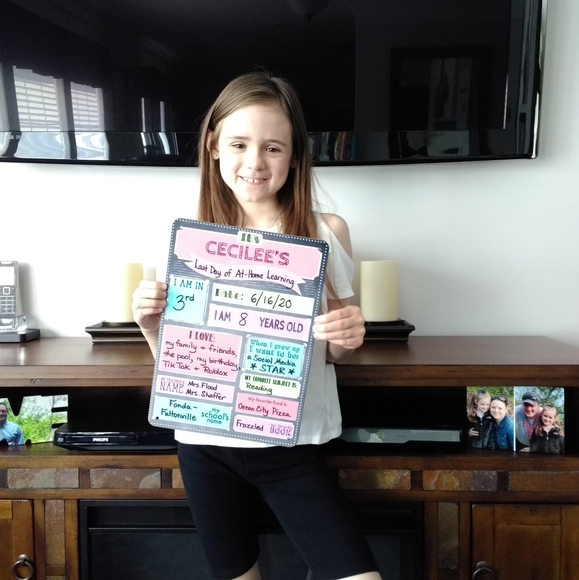 IT'S
CECILEE'S
Last Day of At-Home Learning
I AM IN
3rd
Date: 6/16/20
I AM 8 YEARS OLD
I LOVE:
my family + friends,
the pool, my birthday,
TikTok + Roblox
When I grow up
I want to be
a Social Media
STAR
NAME
Mrs. Flood
Mrs. Shaffer
MY FAVORITE SUBJECT IS
Reading
Fonda-
Fultonville
my
school's
name
My favorite food is:
Ocean City Pizza
Frazzled
BOOK